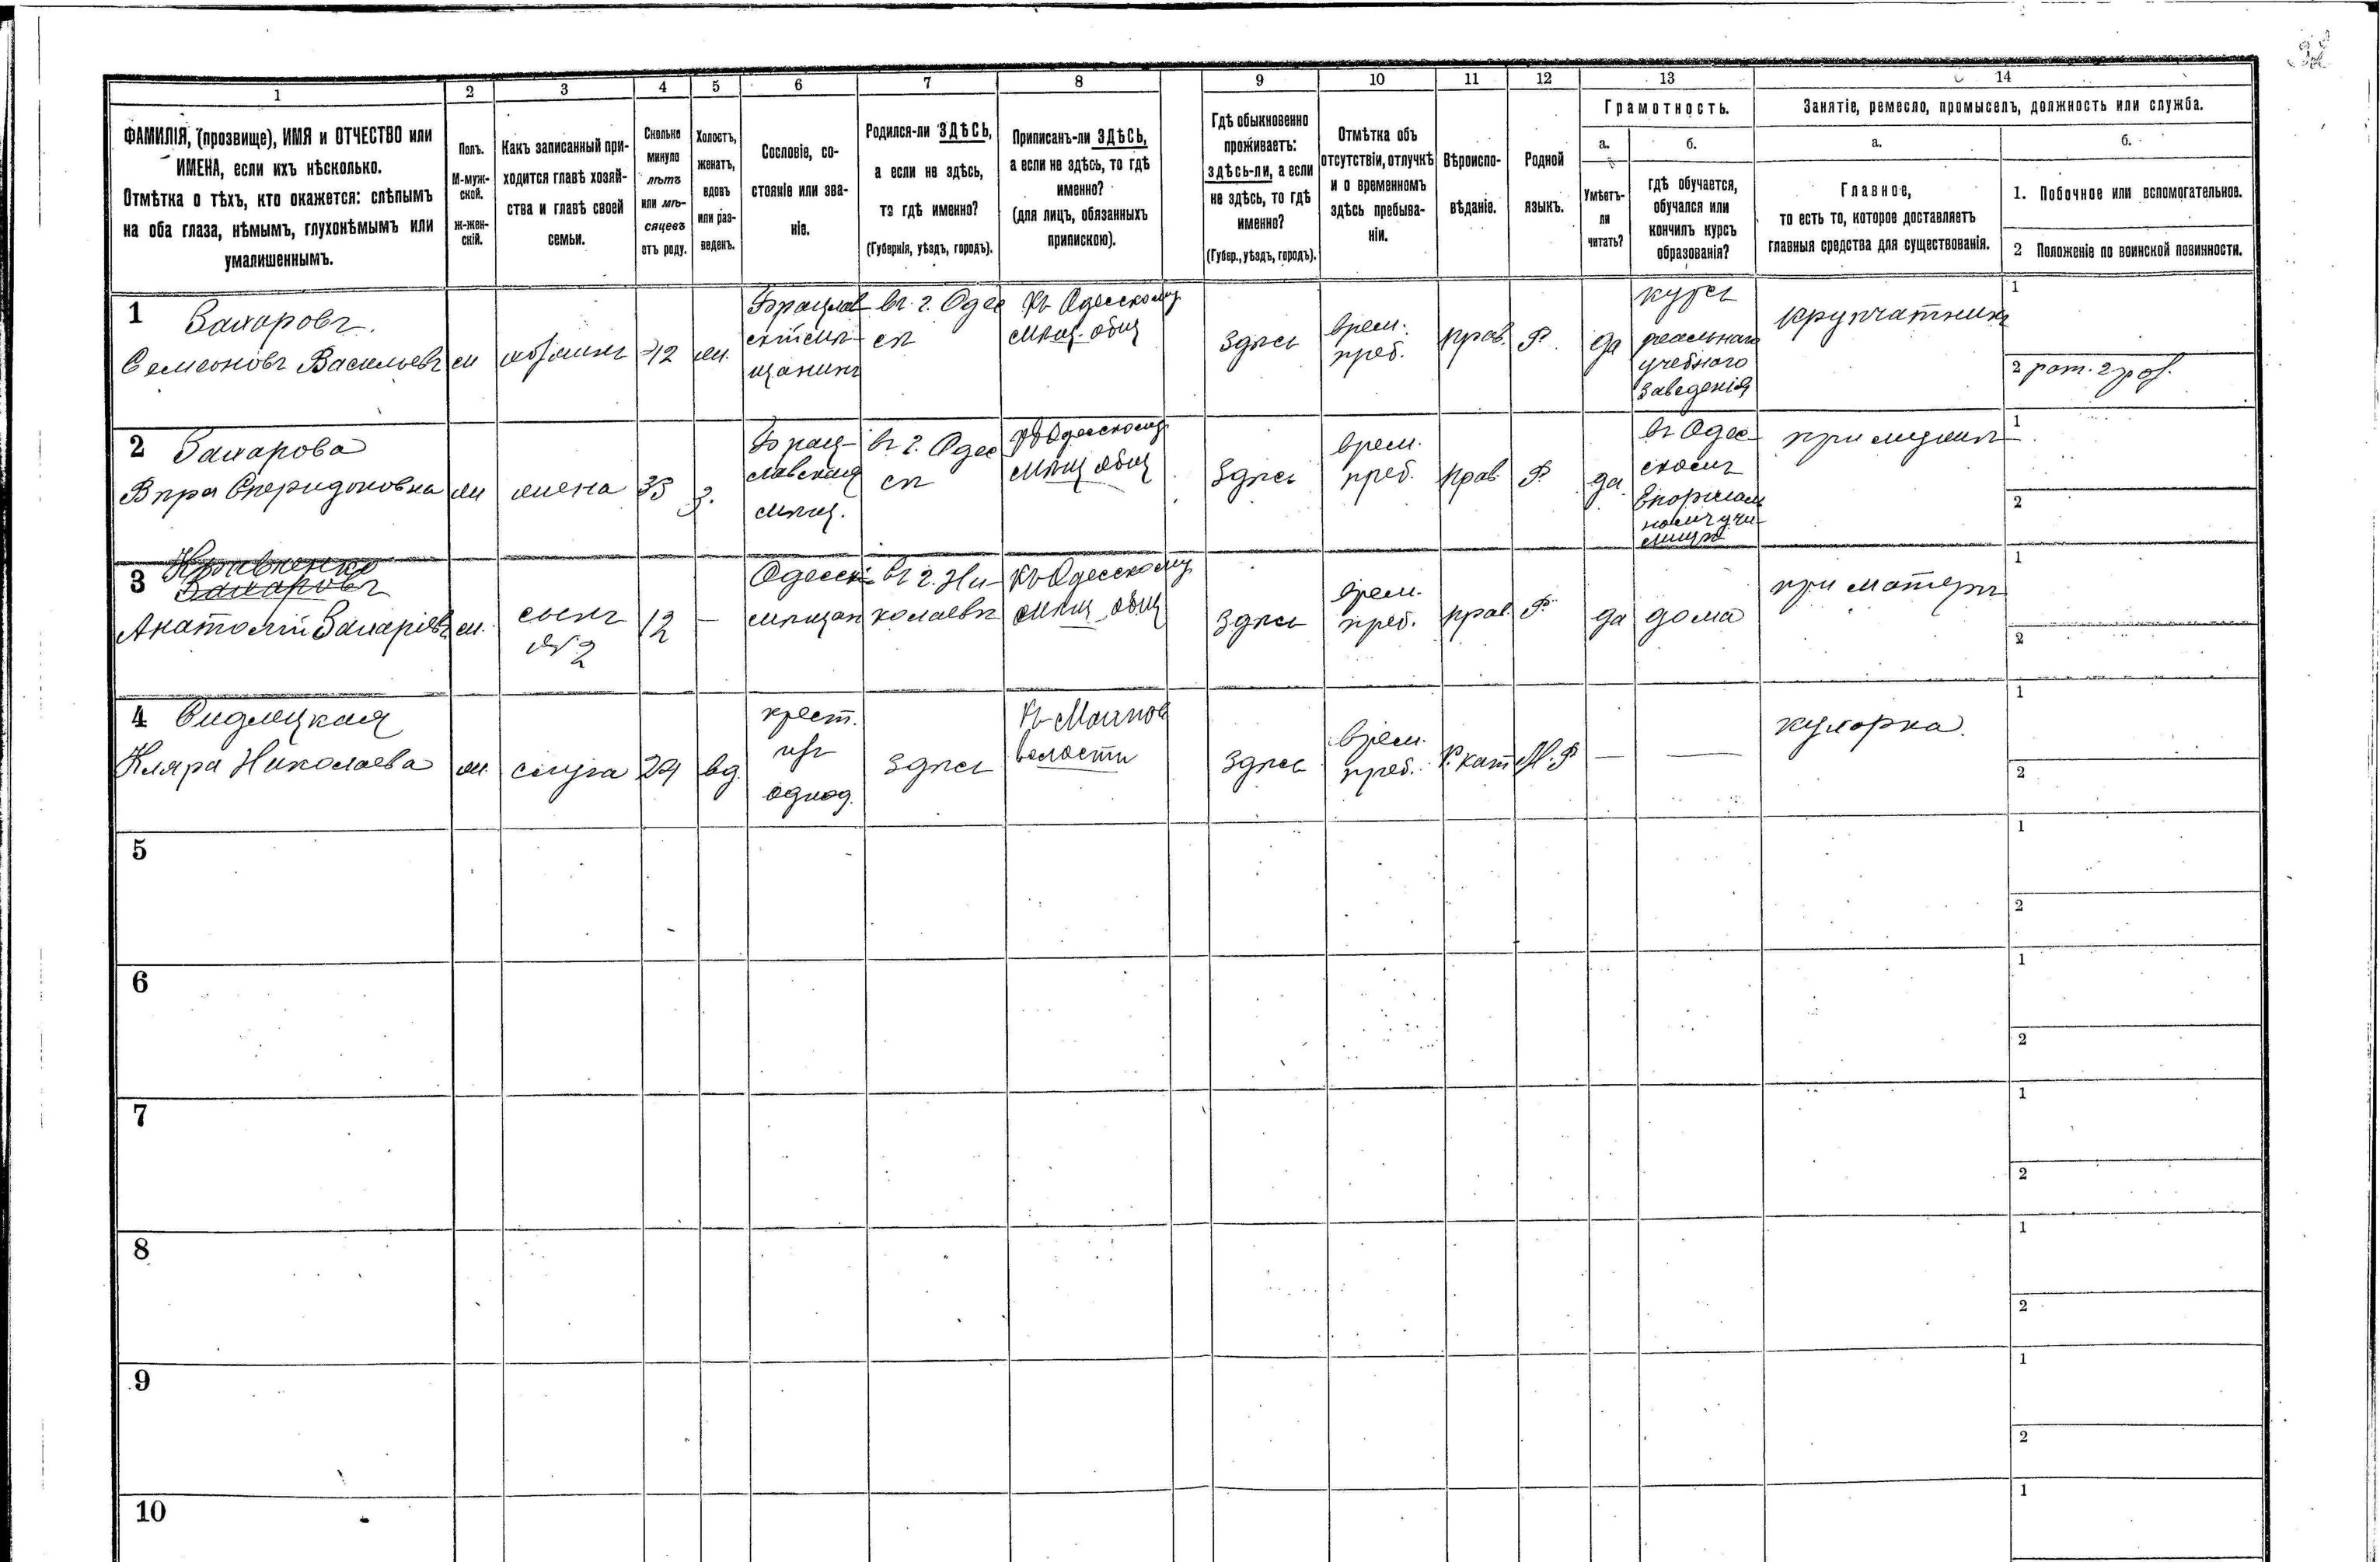 1
2
3
4
5
6
7
8
9
10
11
12
13
14
ФАМИЛІЯ, (прозвище), ИМЯ и ОТЧЕСТВО или
ИМЕНА, если ихъ нѣсколько.
Отмѣтка о тѣхъ, кто окажется: слѣпымъ
на оба глаза, нѣмымъ, глухонѣмымъ или
умалишеннымъ.
Полъ.
М-муж-
ской.
ж-жен-
скій.
Какъ записанный при-
ходится главѣ хозяй-
ства и главѣ своей
семьи.
Сколько
минуло
лѣтъ
или мѣ-
сяцевъ
отъ роду.
Холостъ,
женатъ,
вдовъ
или раз-
веденъ.
Сословіе, со-
стояніе или зва-
ніе.
Родился-ли ЗДѢСЬ,
а если не здѣсь,
то гдѣ именно?
(Губернія, уѣздъ, городъ).
Приписанъ-ли ЗДѢСЬ,
а если не здѣсь, то гдѣ
именно?
(для лицъ, обязанныхъ
припискою).
Гдѣ обыкновенно
проживаетъ:
здѣсь-ли, а если
не здѣсь, то гдѣ
именно?
(Губер., уѣздъ, городъ).
Отмѣтка объ
отсутствіи, отлучкѣ
и о временномъ
здѣсь пребыва-
ніи.
Вѣроиспо-
вѣданіе.
Родной
языкъ.
Грамотность.
а.
Умѣетъ-
ли
читать?
б.
гдѣ обучается,
обучался или
кончилъ курсъ
образованія?
Занятіе, ремесло, промыселъ, должность или служба.
а.
Главное,
то есть то, которое доставляетъ
главныя средства для существованія.
б.
1. Побочное или вспомогательное.
2 Положеніе по воинской повинности.
1
Захаровъ
Семеновъ Васильевъ
м
42
Брацлав
скій мѣ-
щанинъ
въ г. Одес
сѣ
Къ Одесскому
мѣщ. общ
Здѣсь
врем.
преб.
прав.
Р.
да
курсъ
реальнаго
учебнаго
заведенія
крупчатникъ
1
2 рат. 2 раз.
2
Захарова
Вѣра Спиридоновна
ж
жена
35
з.
Брац-
лавская
мѣщ.
въ г. Одес
сѣ
Къ Одесскому
мѣщ общ
Здѣсь
врем.
преб.
прав
Р
да.
въ Одес-
скомъ
учи-
лищѣ
при мужѣ
1
2
3
Кравченко
Захаровъ
Анатолій Захаріевъ
м.
сынъ
№ 2
12
—
Одесск.
мѣщан
въ г. Ни-
колаевѣ
Къ Одесскому
мѣщ общ
Здѣсь
врем.
преб.
прав.
Р
да
дома
при матери
1
2
4
Сидлецкая
Клара Николаева
ж.
слуга
29
вд.
крест.
изъ
однод.
Здѣсь
волости
Здѣсь
врем.
преб.
Р. кат
М. Р
—
—
кухарка.
1
2
5
1
2
6
1
2
7
1
2
8
1
2
9
1
2
10
1